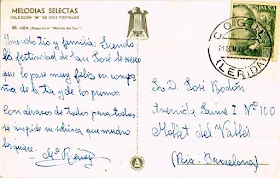 MELODIAS SELECTAS
COLECCIÓN "B" DE DIEZ POSTALES
MI VIDA
Querido tío y familia: Siendo
la festividad de San José le deseo
que lo pase muy feliz en compa
ñía de la tía y de los primos
Con abrazos de todos para todos
se despide su sobrina que mucho
le quiere.
Mª
COGUL
(LERIDA)
Sr. D. José Bodón
Avenida Jaime I Nº 100
Mollet del Vallés
(Pcia. Barcelona)